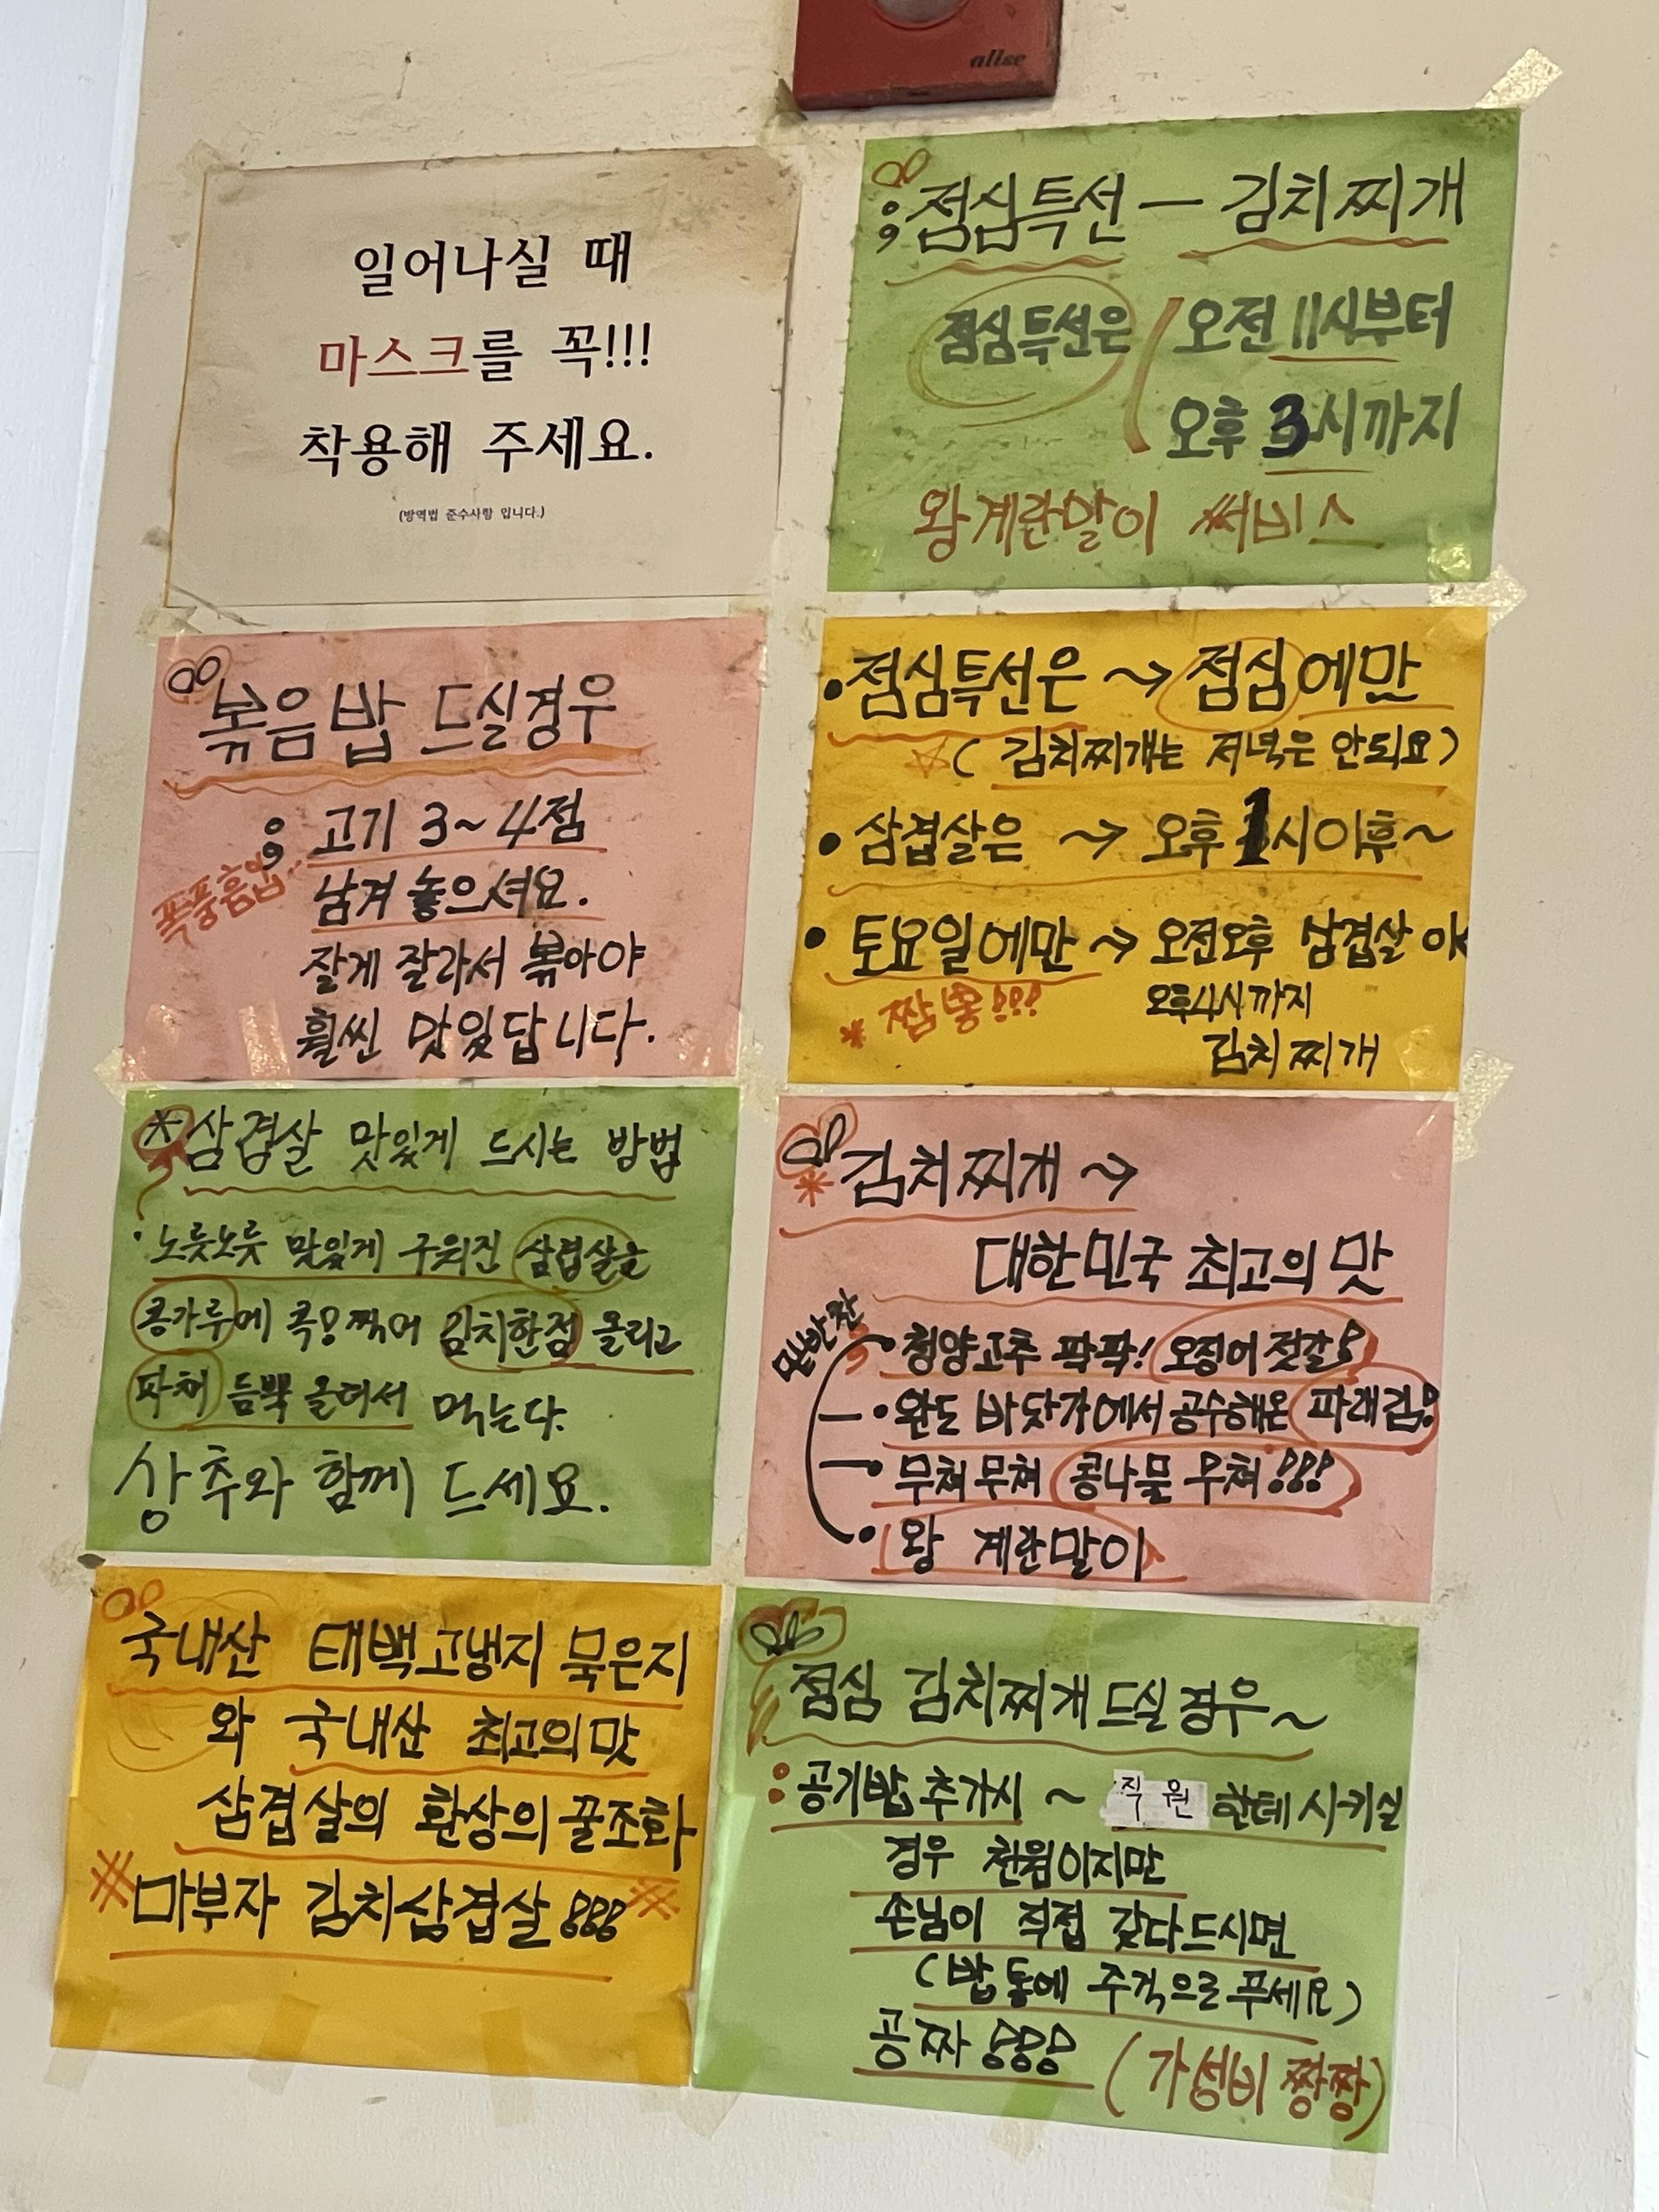 allse
일어나실 때
마스크를 꼭!!!
착용해 주세요.
(방역법 준수사항 입니다.)
점심특선 — 김치찌개
점심특선은 오전 11시부터
오후 3시까지
왕계란말이 써비스
볶음밥 드실경우
고기 3~4점
폭풍흡입..
남겨 놓으셔요.
잘게 잘라서 볶아야
훨씬 맛있답니다.
•점심특선은 → 점심에만
☆( 김치찌개는 저녁은 안되요)
• 삼겹살은 → 오후 1시이후~
• 토요일에만 → 오전오후 삼겹살 OK
* 짬뽕!!! 오후4시까지
김치찌개
*삼겹살 맛있게 드시는 방법
• 노릇노릇 맛있게 구워진 삼겹살을
콩가루에 콕!찍어 김치한점 올리고
파채 듬뿍 올려서 먹는다.
상추와 함께 드세요.
* 김치찌개 →
대한민국 최고의 맛
밑반찬
• 청양고추 팍팍! 오징어 젓갈!
• 완도 바닷가에서 공수해온 파래김!
• 무쳐무쳐 콩나물 무쳐!!!
• 왕 계란말이
국내산 태백고냉지 묵은지
와 국내산 최고의 맛
삼겹살의 환상의 꿀조화
※마부자 김치삼겹살!!!※
점심 김치찌개 드실경우~
: 공기밥 추가시 ~ 직원 한테 시키실
경우 천원이지만
손님이 직접 갖다드시면
(밥통에 주걱으로 푸세요)
공짜!!! (가성비 짱짱)